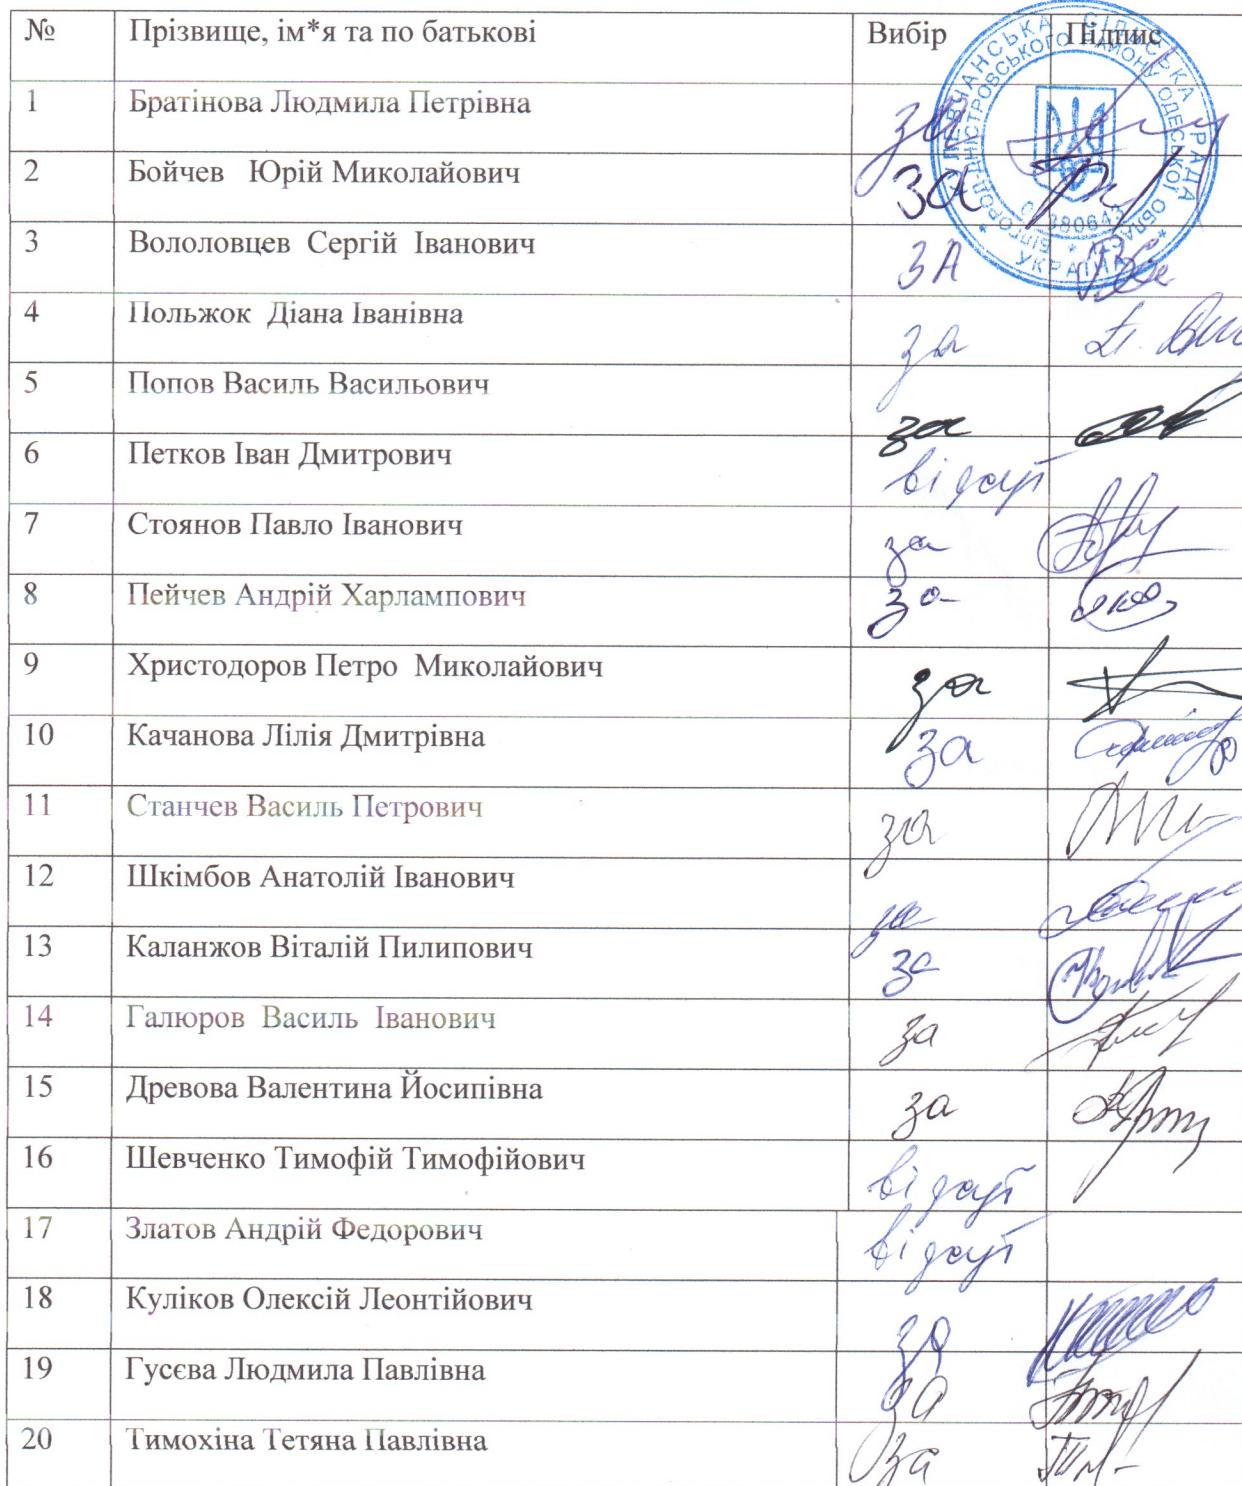 № Прізвище, ім*я та по батькові Вибір Підпис
1 Братінова Людмила Петрівна за
2 Бойчев Юрій Миколайович за
3 Вололовцев Сергій Іванович ЗА
4 Польжок Діана Іванівна за
5 Попов Василь Васильович за
6 Петков Іван Дмитрович відсут
7 Стоянов Павло Іванович за
8 Пейчев Андрій Харлампович за
9 Христодоров Петро Миколайович за
10 Качанова Лілія Дмитрівна за
11 Станчев Василь Петрович за
12 Шкімбов Анатолій Іванович за
13 Каланжов Віталій Пилипович за
14 Галюров Василь Іванович за
15 Древова Валентина Йосипівна за
16 Шевченко Тимофій Тимофійович відсут
17 Златов Андрій Федорович відсут
18 Куліков Олексій Леонтійович за
19 Гусєва Людмила Павлівна за
20 Тимохіна Тетяна Павлівна за
СІЛЬСЬКА РАДА
РАЙОНУ ОДЕСЬКОЇ ОБЛАСТІ
УКРАЇНА